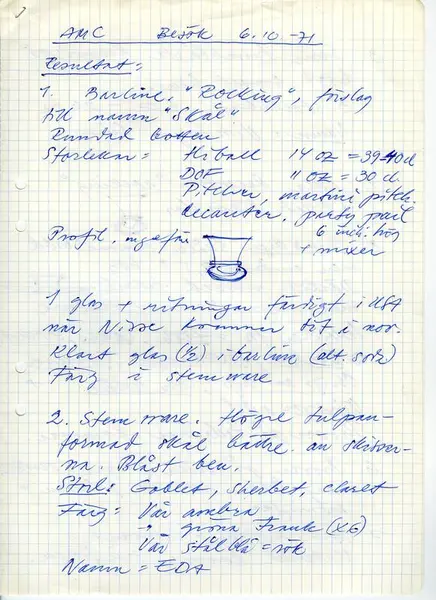 AMC Besök 6.10 -71
Resultat:
1. Barline, "Rocking", förslag
till namn "Skål"
Rundad botten
Storlekar = Hiball 14 oz = 39-40 cl
DOF 11 oz = 30 cl
Pitcher, martini pitch.
decanter, party pail
6 inch. hög
+ mixer
Profil, ungefär
1 glas + ritningar färdigt i USA
när Nisse kommer dit i nov.
Klart glas (½) i barline (alt. soda)
Färg i stemware
2. Stemware. Högre tulpan-
formad skål bättre än skisser-
na. Blåst ben.
Storl: Goblet, sherbet, claret
Färg: Vår ambra
-"- gröna Frank (XG)
Vår stålblå = rök
Namn = EDA